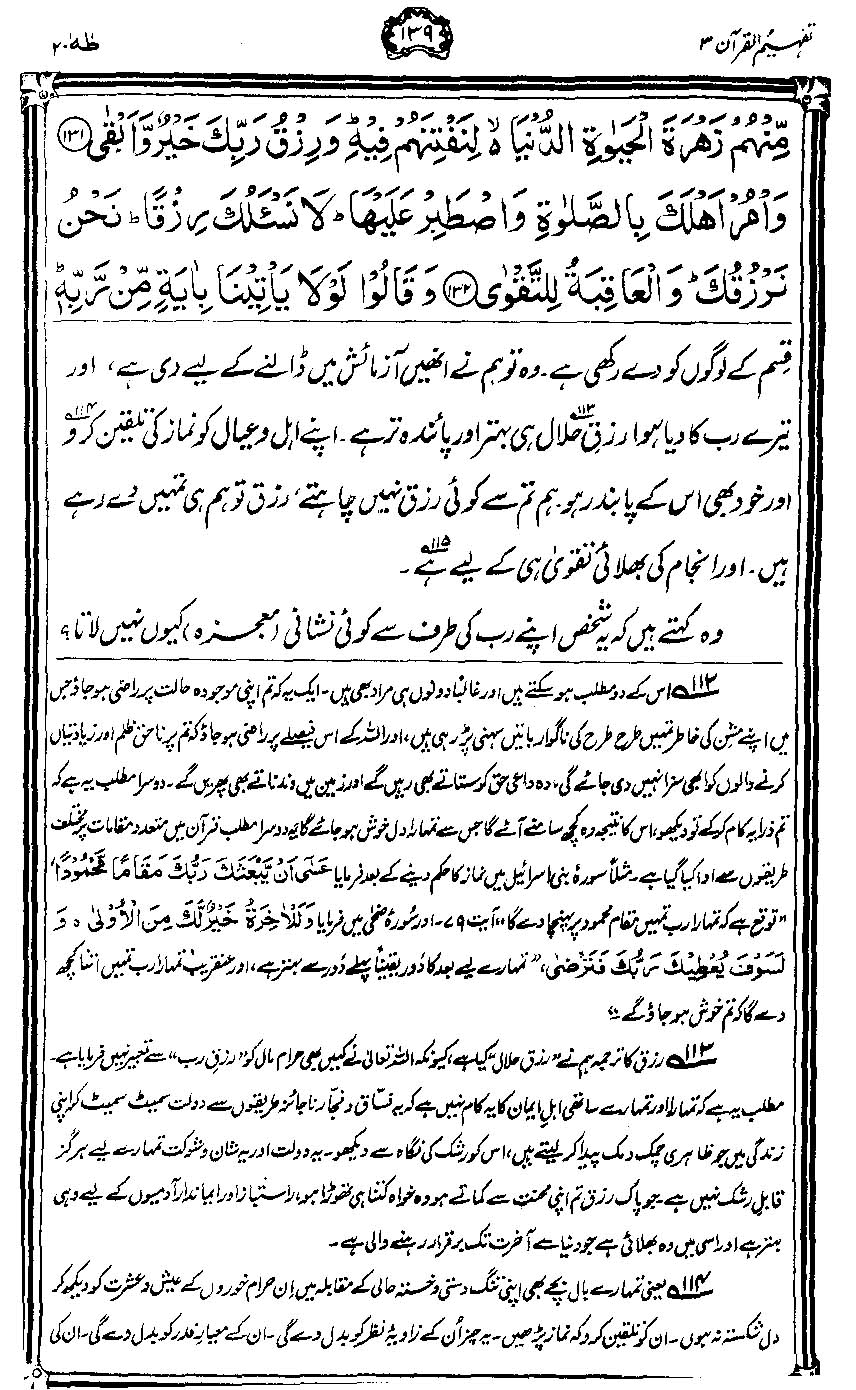 تفہیم القرآن ۳
۱۳۹
طٰہٰ ۲۰
مِّنْهُمْ زَهْرَةَ الْحَيٰوةِ الدُّنْيَا ۙ لِنَفْتِنَهُمْ فِيْهِ ؕ وَرِزْقُ رَبِّكَ خَيْرٌ وَّاَبْقٰى ﴿۱۳۱﴾
وَاْمُرْ اَهْلَكَ بِالصَّلٰوةِ وَاصْطَبِرْ عَلَيْهَا ؕ لَا نَسْـَٔلُكَ رِزْقًا ؕ نَحْنُ
نَرْزُقُكَ ؕ وَالْعَاقِبَةُ لِلتَّقْوٰى ﴿۱۳۲﴾ وَقَالُوْا لَوْلَا يَاْتِيْنَا بِاٰيَةٍ مِّنْ رَّبِّهٖ ؕ
قسم کے لوگوں کو دے رکھی ہے۔ وہ تو ہم نے انھیں آزمائش میں ڈالنے کے لیے دی ہے، اور
تیرے رب کا دیا ہوا رزقِ حلال ۱۱۳؎ ہی بہتر اور پائندہ تر ہے۔ اپنے اہل و عیال کو نماز کی تلقین کرو ۱۱۴؎
اور خود بھی اس کے پابند رہو۔ ہم تم سے کوئی رزق نہیں چاہتے، رزق تو ہم ہی تمہیں دے رہے
ہیں۔ اور انجام کی بھلائی تقویٰ ہی کے لیے ہے ۱۱۵؎۔
وہ کہتے ہیں کہ یہ شخص اپنے رب کی طرف سے کوئی نشانی (معجزہ) کیوں نہیں لاتا؟
۱۱۲؎ اس کے دو مطلب ہو سکتے ہیں اور غالباً دونوں ہی مراد بھی ہیں۔ ایک یہ کہ تم اپنی موجودہ حالت پر راضی ہو جاؤ جس
میں اپنے مشن کی خاطر تمہیں طرح طرح کی ناگوار باتیں سہنی پڑ رہی ہیں، اور اللہ کے اس فیصلے پر راضی ہو جاؤ کہ تم پر ناحق ظلم اور زیادتیاں
کرنے والوں کو ابھی سزا نہیں دی جائے گی، وہ داعیِ حق کو ستاتے بھی رہیں گے اور زمین میں دندناتے بھی پھریں گے۔ دوسرا مطلب یہ ہے کہ
تم ذرا یہ کام کر کے تو دیکھو، اس کا نتیجہ وہ کچھ سامنے آئے گا جس سے تمہارا دل خوش ہو جائے گا۔ یہ دوسرا مطلب قرآن میں متعدد مقامات پر مختلف
طریقوں سے ادا کیا گیا ہے۔ مثلاً سورۂ بنی اسرائیل میں نماز کا حکم دینے کے بعد فرمایا عَسٰٓى اَنْ يَّبْعَثَكَ رَبُّكَ مَقَامًا مَّحْمُوْدًا،
”توقع ہے کہ تمہارا رب تمہیں مقامِ محمود پر پہنچا دے گا“ آیت ۷۹۔ اور سورۂ ضحٰی میں فرمایا وَلَلْاٰخِرَةُ خَيْرٌ لَّكَ مِنَ الْاُوْلٰى ہ وَ
لَسَوْفَ يُعْطِيْكَ رَبُّكَ فَتَرْضٰى، ”تمہارے لیے بعد کا دور یقیناً پہلے دور سے بہتر ہے، اور عنقریب تمہارا رب تمہیں اتنا کچھ
دے گا کہ تم خوش ہو جاؤ گے۔“
۱۱۳؎ رزق کا ترجمہ ہم نے ”رزقِ حلال“ کیا ہے، کیونکہ اللہ تعالیٰ نے کہیں بھی حرام مال کو ”رزقِ رب“ سے تعبیر نہیں فرمایا ہے۔
مطلب یہ ہے کہ تمہارا اور تمہارے ساتھی اہلِ ایمان کا یہ کام نہیں ہے کہ یہ فساق و فجار ناجائز طریقوں سے دولت سمیٹ سمیٹ کر اپنی
زندگی میں جو ظاہری چمک دمک پیدا کر لیتے ہیں، اس کو رشک کی نگاہ سے دیکھو۔ یہ دولت اور یہ شان و شوکت تمہارے لیے ہرگز
قابلِ رشک نہیں ہے۔ جو پاک رزق تم اپنی محنت سے کماتے ہو وہ خواہ کتنا ہی تھوڑا ہو، راستباز اور ایماندار آدمیوں کے لیے وہی
بہتر ہے اور اسی میں وہ بھلائی ہے جو دنیا سے آخرت تک برقرار رہنے والی ہے۔
۱۱۴؎ یعنی تمہارے بال بچے بھی اپنی تنگ دستی و خستہ حالی کے مقابلہ میں اِن حرام خوروں کے عیش و عشرت کو دیکھ کر
دل شکستہ نہ ہوں۔ ان کو تلقین کرو کہ نماز پڑھیں۔ یہ چیز اُن کے زاویۂ نظر کو بدل دے گی۔ ان کے معیارِ قدر کو بدل دے گی۔ ان کی